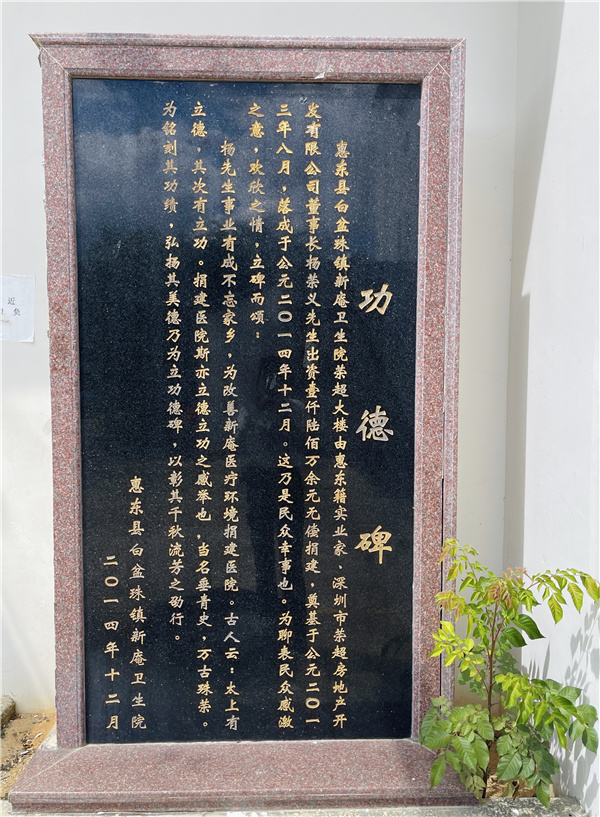 功德碑
惠东县白盆珠镇新庵卫生院荣超大楼由惠东籍实业家、深圳市荣超房地产开
发有限公司董事长杨荣义先生出资壹仟陆佰万余元无偿捐建，奠基于公元二〇一
三年八月，落成于公元二〇一四年十二月。这乃是民众幸事也。为聊表民众感激
之意，欢欣之情，立碑而颂：
杨先生事业有成不忘家乡，为改善新庵医疗环境捐建医院。古人云：太上有
立德，其次有立功。捐建医院斯亦立德立功之盛举也，当名垂青史，万古殊荣。
为铭刻其功绩，弘扬其美德乃为立功德碑，以彰其千秋流芳之劭行。
惠东县白盆珠镇新庵卫生院
二〇一四年十二月
近